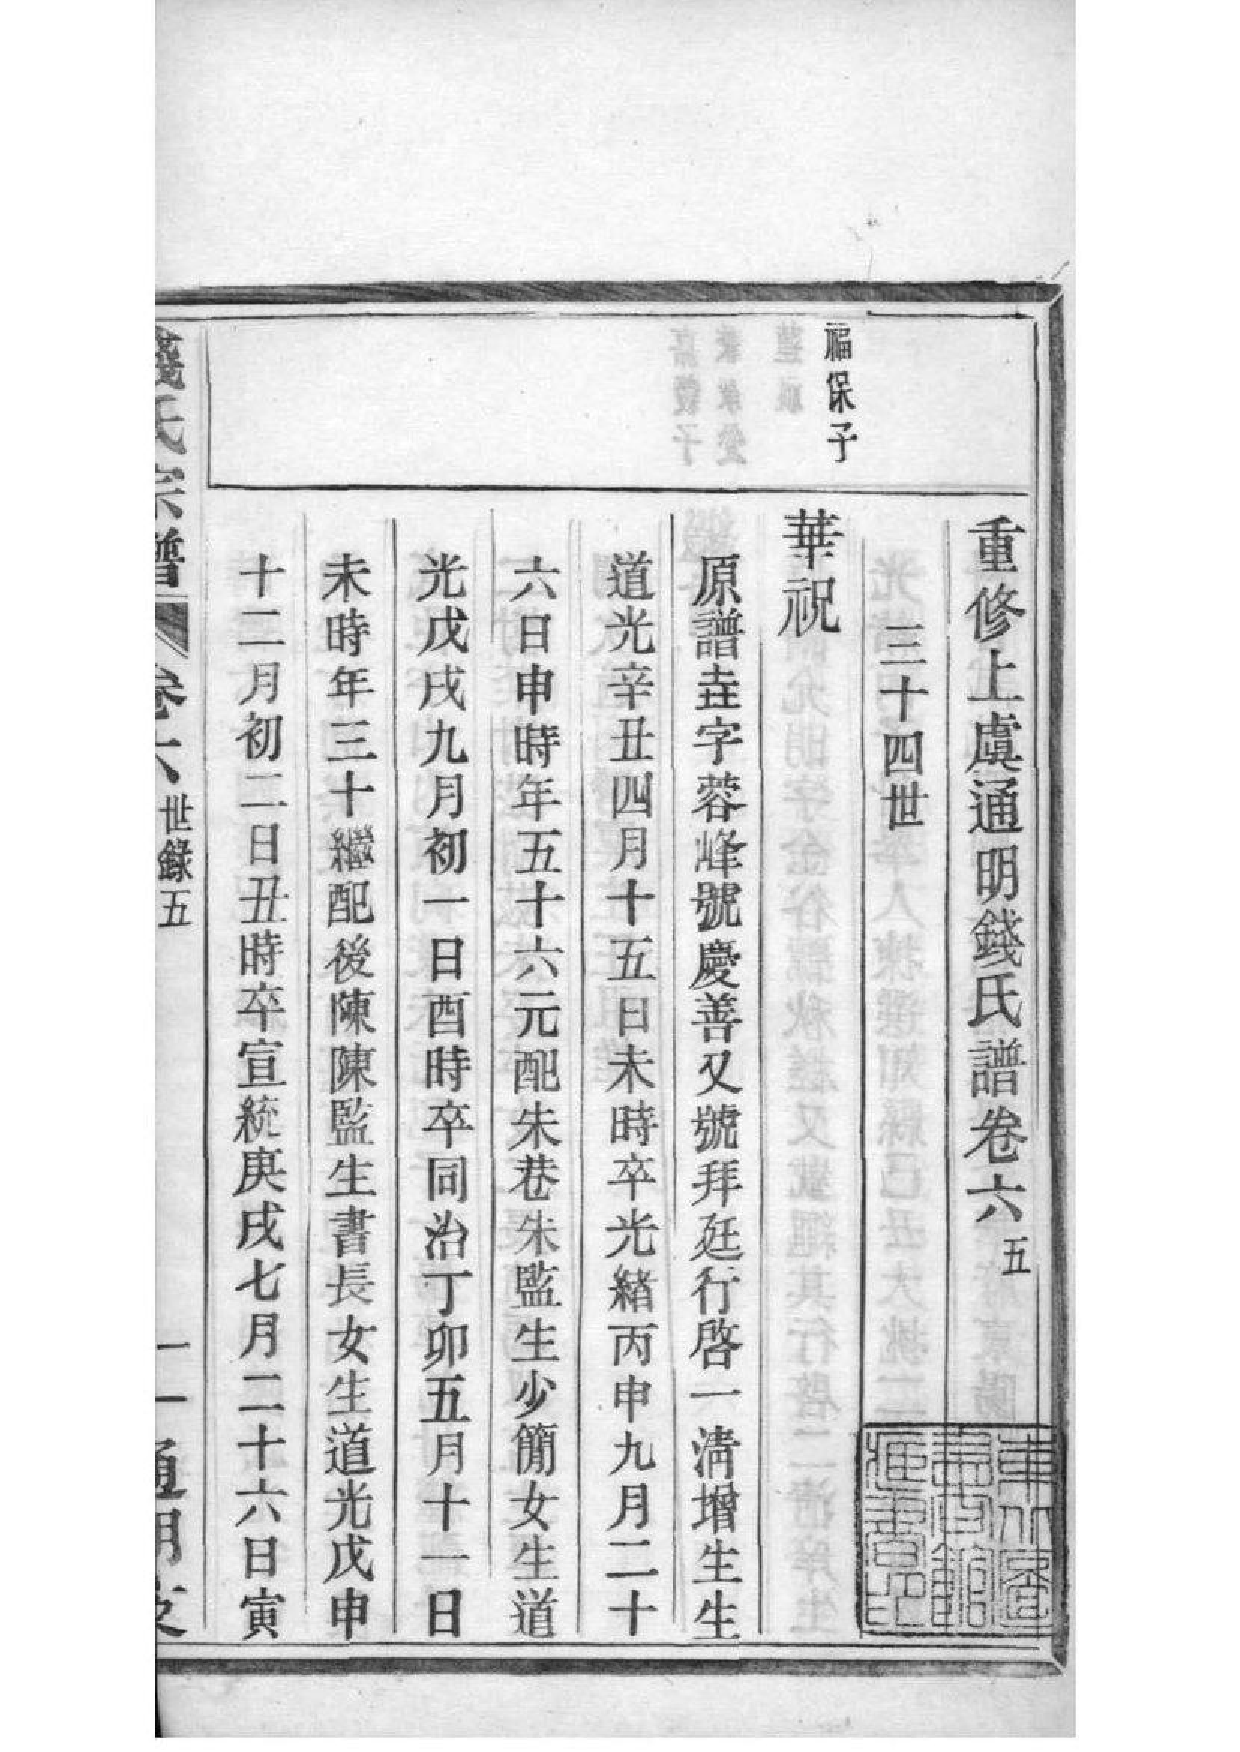 重修上虞通明錢氏譜卷六 五
三十四世
福保子
華祝
原譜垚字蓉峰號慶善又號拜廷行啓一清增生生
道光辛丑四月十五日未時卒光緒丙申九月二十
六日申時年五十六元配朱巷朱監生少簡女生道
光戊戌九月初一日酉時卒同治丁卯五月十一日
未時年三十繼配後陳陳監生書長女生道光戊申
十二月初二日丑時卒宣統庚戌七月二十六日寅
錢氏宗譜 卷六 世錄五 一 通明支